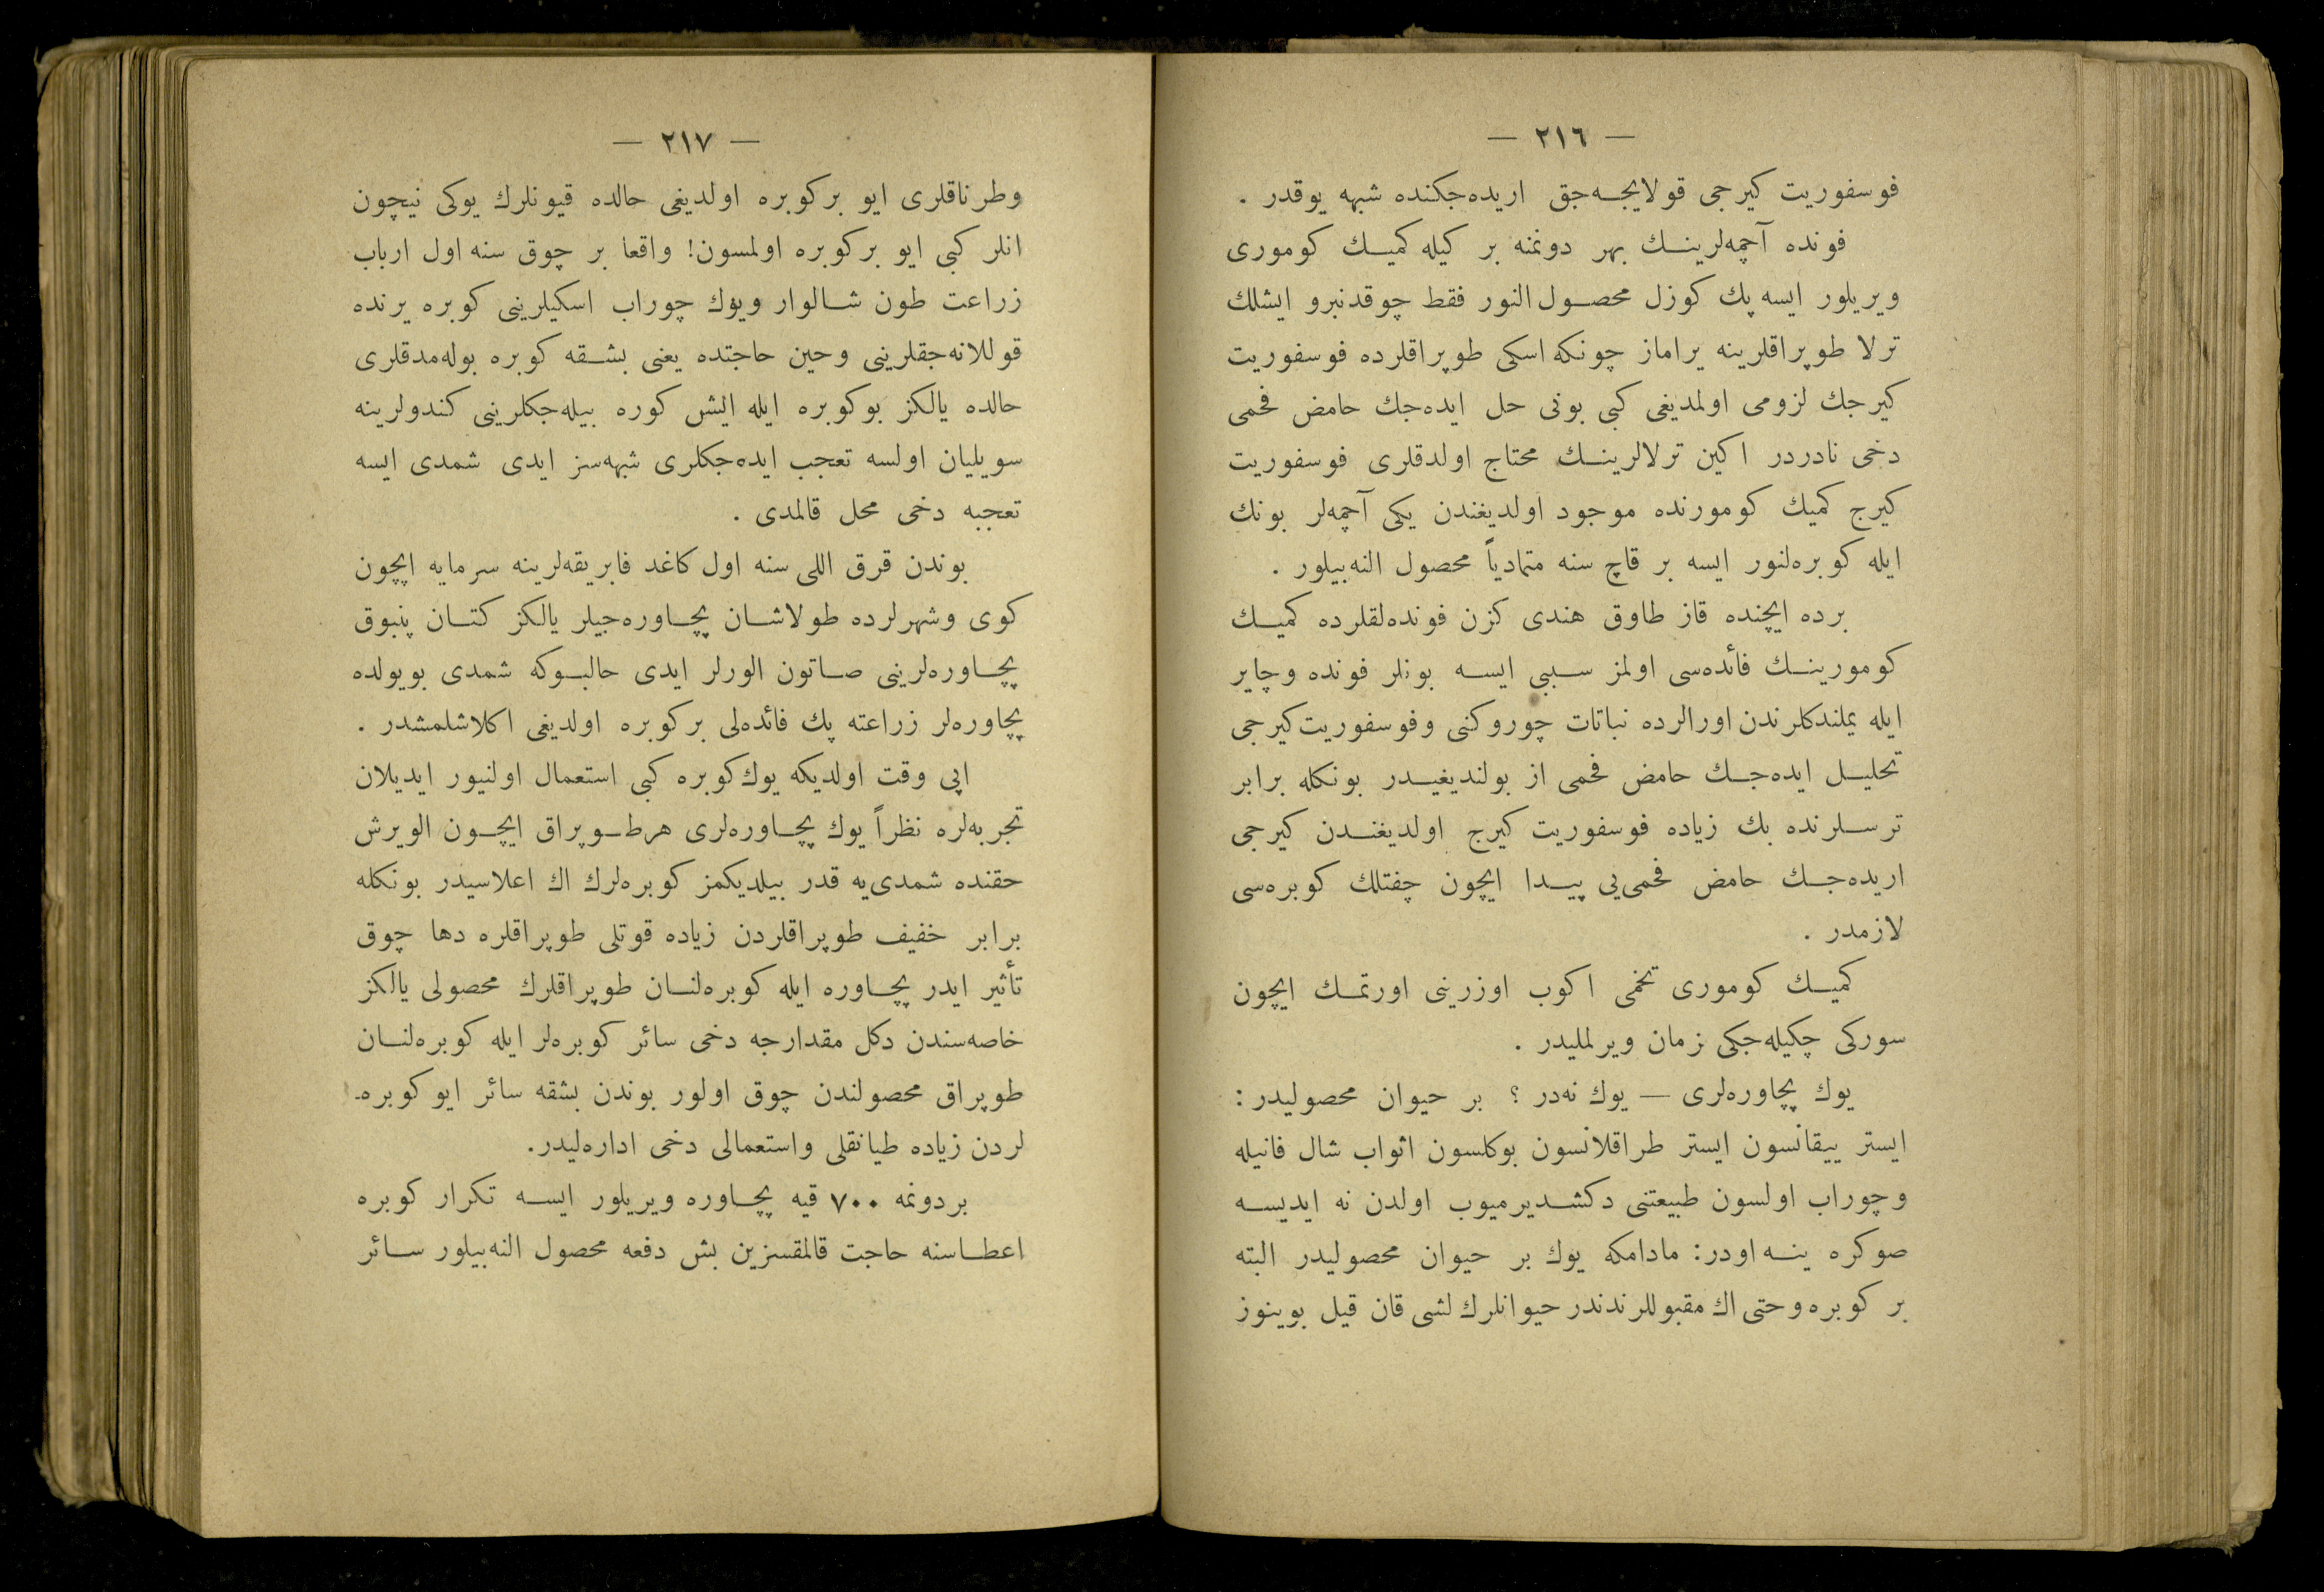 — ٢١٦ —
فوسفوریت كیرجی قولایجه‌جق اریده‌جكنده شبهه یوقدر .
فونده آچمه‌لرینك بهر دونمنه بر كیله كمیك كوموری
ویریلور ایسه پك كوزل محصول النور فقط چوقدنبرو ایشلك
ترلا طوپراقلرینه یراماز چونكه اسكی طوپراقلرده فوسفوریت
كیرجك لزومی اولمدیغی كبی بونی حل ایده‌جك حامض فحمی
دخی نادردر اكین ترلالرینك محتاج اولدقلری فوسفوریت
كیرج كمیك كومورنده موجود اولدیغندن یكی آچمه‌لر بونك
ایله كوبره‌لنور ایسه بر قاچ سنه متمادیاً محصول النه‌بیلور .
برده ایچنده قاز طاوق هندی كزن فونده‌لقلرده كمیك
كومورینك فائده‌سی اولمز سببی ایسه بونلر فونده وچایر
ایله یملندكلرندن اورالرده نباتات چوروكنی وفوسفوریت كیرجی
تحلیل ایده‌جك حامض فحمی از بولندیغیدر بونكله برابر
ترسلرنده بك زیاده فوسفوریت كیرج اولدیغندن كیرجی
اریده‌جك حامض فحمی‌یی پیدا ایچون چفتلك كوبره‌سی
لازمدر .
كمیك كوموری تخمی اكوب اوزرینی اورتمك ایچون
سوركی چكیله‌جكی زمان ویرلملیدر .
یوك پچاوره‌لری — یوك نه‌در ؟ بر حیوان محصولیدر :
ایستر ییقانسون ایستر طراقلانسون بوكلسون اثواب شال فانیله
وچوراب اولسون طبیعتنی دكشدیرمیوب اولدن نه ایدیسه
صوكره ینه اودر : مادامكه یوك بر حیوان محصولیدر البته
بر كوبره وحتی اك مقبوللرندندر حیوانلرك لشی قان قیل بوینوز
— ٢١٧ —
وطرناقلری ایو بركوبره اولدیغی حالده قیونلرك یوكی نیچون
انلر كبی ایو بركوبره اولمسون! واقعا بر چوق سنه اول ارباب
زراعت طون شالوار ویوك چوراب اسكیلرینی كوبره یرنده
قوللانه‌جقلرینی وحین حاجتده یعنی بشقه كوبره بوله‌مدقلری
حالده یالكز بوكوبره ایله ایش كوره بیله‌جكلرینی كندولرینه
سویلیان اولسه تعجب ایده‌جكلری شبهه‌سز ایدی شمدی ایسه
تعجبه دخی محل قالمدی .
بوندن قرق اللی سنه اول كاغد فابریقه‌لرینه سرمایه ایچون
كوی وشهرلرده طولاشان پچاوره‌جیلر یالكز كتان پنبوق
پچاوره‌لرینی صاتون الورلر ایدی حالبوكه شمدی بویولده
پچاوره‌لر زراعته پك فائده‌لی بركوبره اولدیغی اكلاشلمشدر .
اپی وقت اولدیكه یوك كوبره كبی استعمال اولنیور ایدیلان
تجربه‌لره نظراً یوك پچاوره‌لری هرطوپراق ایچون الویرش
حقنده شمدی‌یه قدر بیلدیكمز كوبره‌لرك اك اعلاسیدر بونكله
برابر خفیف طوپراقلردن زیاده قوتلی طوپراقلره دها چوق
تأثیر ایدر پچاوره ایله كوبره‌لنان طوپراقلرك محصولی یالكز
خاصه‌سندن دكل مقدارجه دخی سائر كوبره‌لر ایله كوبره‌لنان
طوپراق محصولندن چوق اولور بوندن بشقه سائر ایو كوبره‌ـ
لردن زیاده طیانقلی واستعمالی دخی اداره‌لیدر.
بردونمه ٧٠٠ قیه پچاوره ویریلور ایسه تكرار كوبره
اعطاسنه حاجت قالمقسزین بش دفعه محصول النه‌بیلور سائر